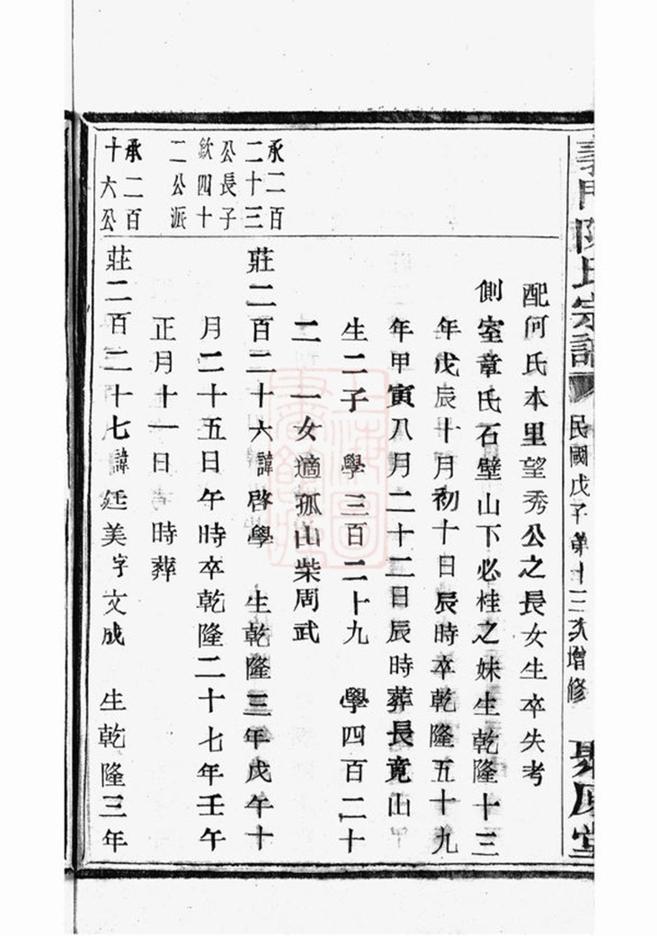 義門陳氏宗譜 民國戊子第十三次增修 堂
配何氏本里望秀公之長女生卒失考
側室章氏石壁山下必桂之妹生乾隆十三
年戊辰十月初十日辰時卒乾隆五十九
年甲寅八月二十二日辰時葬長竟山
生二子 學三百二十九 學四百二十
二 一女適孤山柴周武
承二百
二十三
公長子
欽四十
二公派
莊二百二十六諱啓學 生乾隆三年戊午十
月二十五日午時卒乾隆二十七年壬午
正月十一日 時葬
承二百
十六公
莊二百二十七諱廷美字文成 生乾隆三年
上海圖書館藏